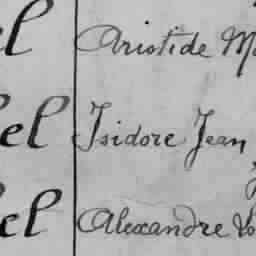 el Aristide M
el Isidore Jean
el Alexandre